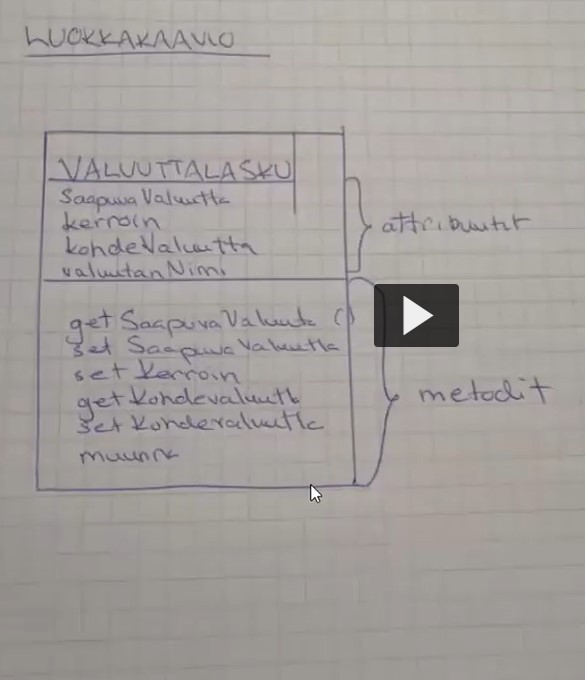 LUOKKAKAAVIO
VALUUTTALASKU
SaapuvaValuutta
kerroin
kohdeValuutta
valuutanNimi
attribuutit
get SaapuvaValuutta ()
set SaapuvaValuutta
set Kerroin
get Kohdevaluutta
set Kohdevaluutta
muunna
metodit